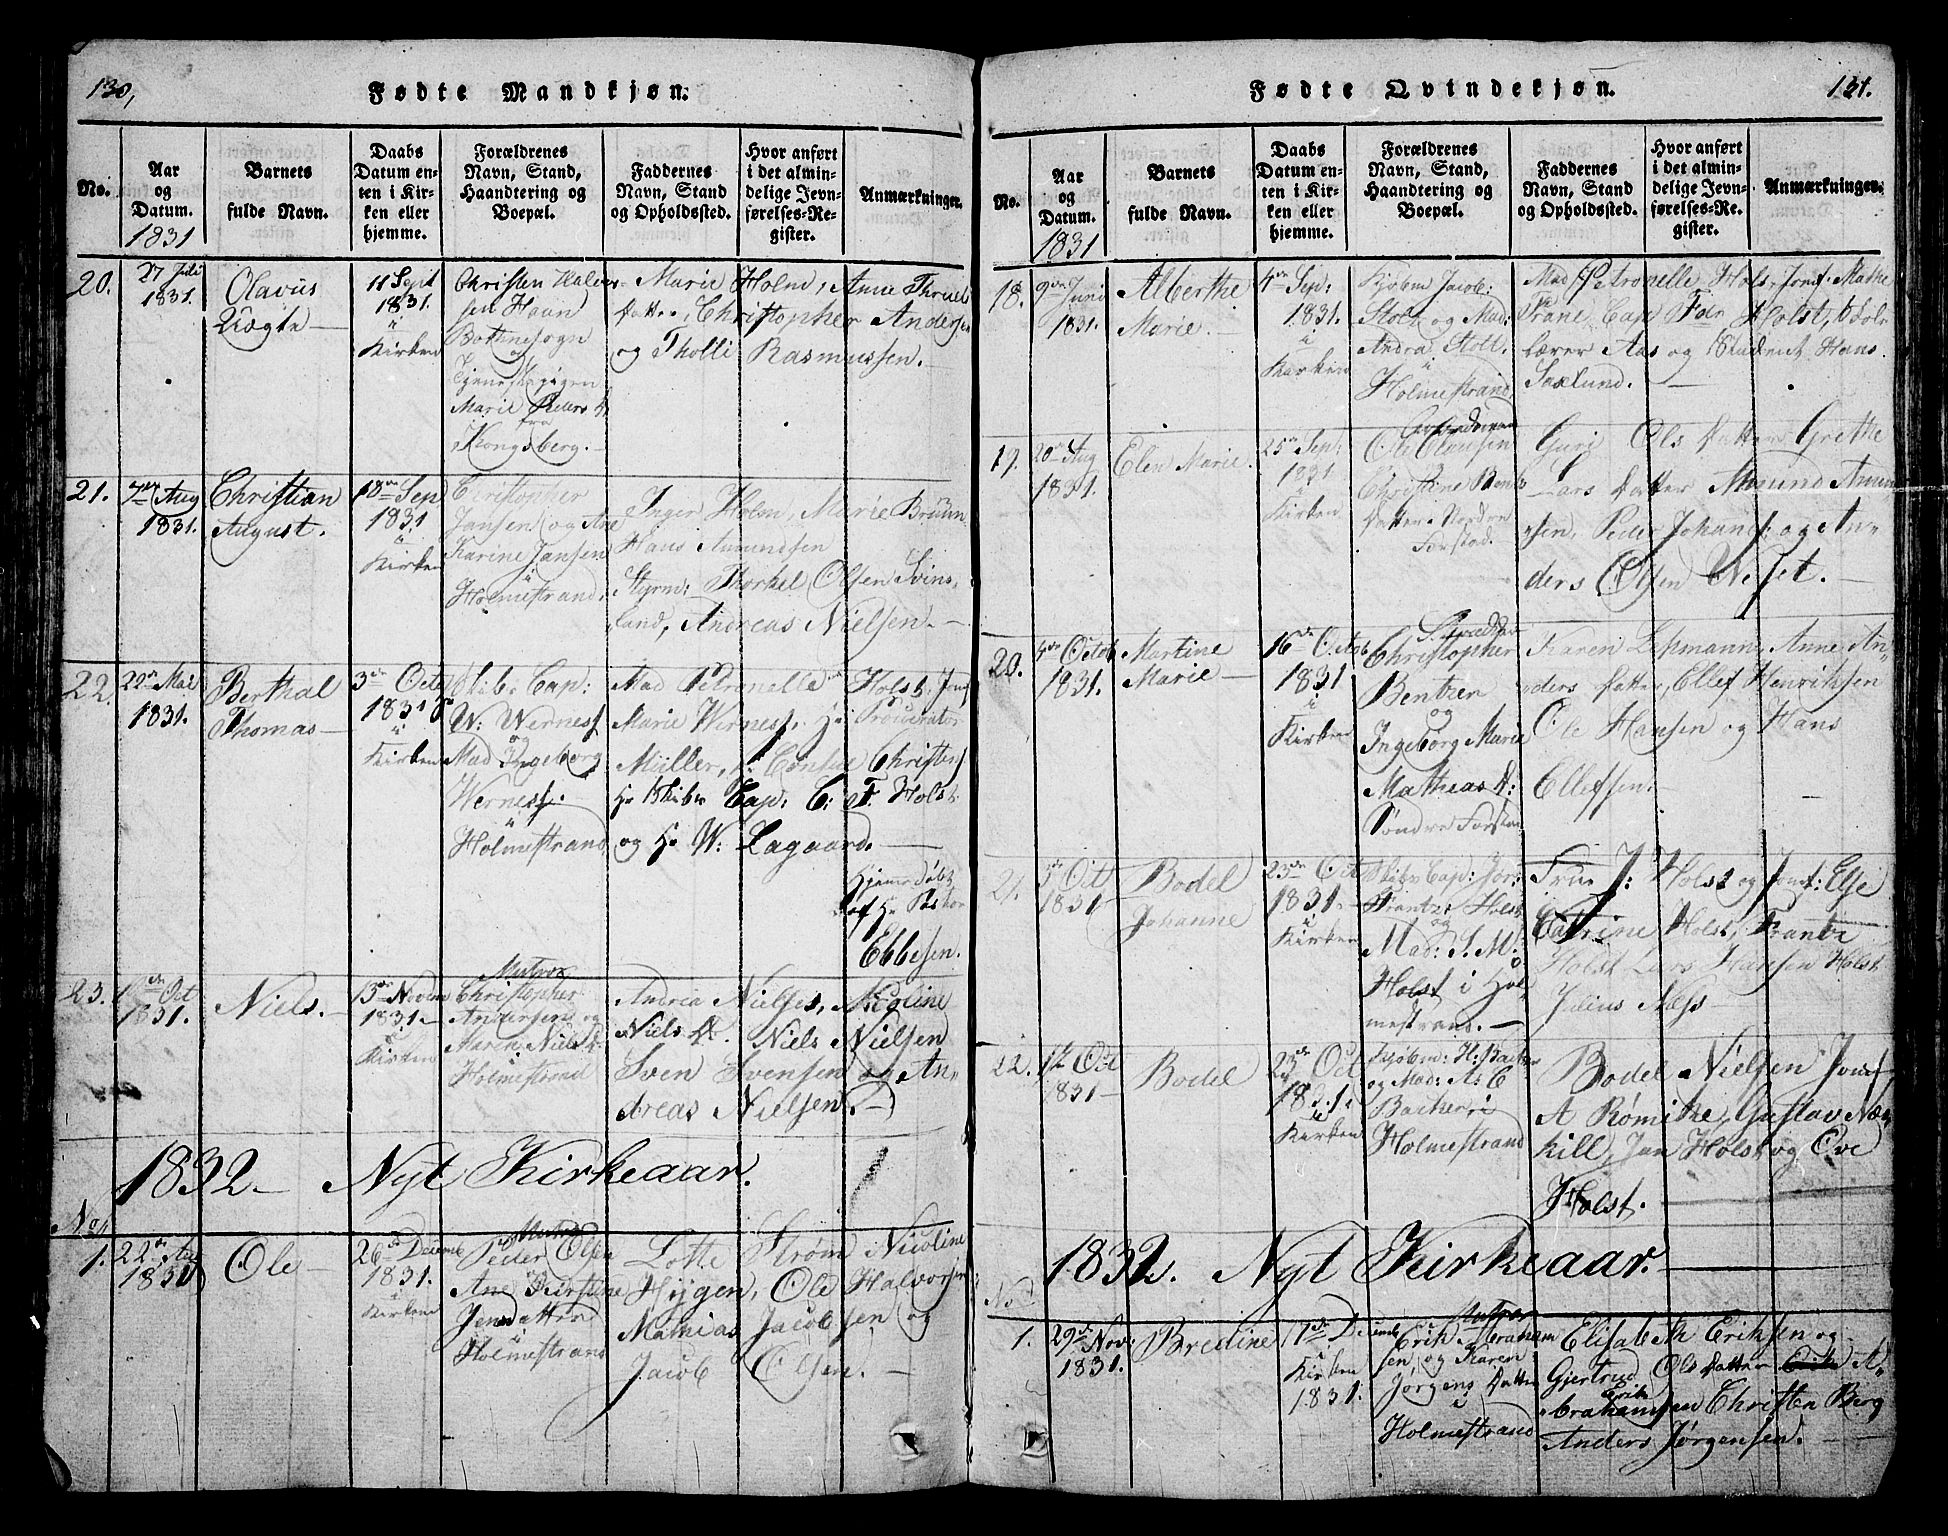 130,
Fødte Mandkjøn.
No.
Aar
og
Datum.
1831
Barnets
fulde Navn.
Daabs
Datum en-
ten i Kir-
ken eller
hjemme.
Forældrenes
Navn, Stand,
Haandtering og
Boepæl.
Faddernes
Navn, Stand
og Opholdssted.
Hvor anført
i det almin-
delige Jevn-
førelses-Re-
gister.
Anmærkninger.
20.
27 Juli
1831.
Olavus
11 Sept
1831.
i
Kirken
Christen Halvor-
sen Haan
Bothnesogn
og
Tjenestepigen
Marie Peders D.
fra
Kongsberg.
Marie Holm, Anne Thruls
datter, Christopher Andersen
og Tholli Rasmussen.
21.
7de Aug
1831.
Christian
August.
18de Sep
1831
i
Kirken
Christopher
Jansen og Ane
Karine Jansen
i
Holmestrand.
Inger Holm, Marie Bruun
Hans Amundsen
Styrm: Thorkel Olsen Svins-
land, Andreas Nielsen.
22.
22de Mai
1831.
Berthal
Thomas
3de Octo
1831
i
Kirken
Skib. Cap:
W: Werness
og
Mad Ingeborg
Werness.
i
Holmestrand
Mad Petronelle Holst, Jomf
Marie Werness, Hr Procurator
Müller, Hr Consul Christen
Hr Skibs Cap: C: F. Holst
og Hr W: Lagaard.
Hjemedøbt
af Hr Pastor
Ebbesen.
23.
1de Oct
1831.
Niels.
13de Novem
1831.
i
Kirken
Matros
Christopher
Andersen og
Maren Niels D.
i
Holmestrand
Andrea Nielsen, Nicoline
Niels D. Niels Nielsen
Sven Svensen og An-
dreas Nielsen.
1832 Nyt Kirkeaar.
No
1.
22de Aug
1831
Ole
26de Decemb
1831.
i
Kirken
Matros
Peder Olsen
Ane Kirstine
Jensdatter
i
Holmestrand
Lotte Strøm Nicoline
Hygen, Ole Halvorsen
Mathias Jacobsen og
Jacob Olsen.
131.
Fødte Qvindekjøn.
No.
Aar
og
Datum.
1831
Barnets
fulde Navn.
Daabs
Datum en-
ten i Kir-
ken eller
hjemme.
Forældrenes
Navn, Stand,
Haandtering og
Boepæl.
Faddernes
Navn, Stand
og Opholdssted.
Hvor anført
i det almin-
delige Jevn-
førelses-Re-
gister.
Anmærkninger.
18.
9de Juni
1831.
Alberthe
Marie.
4de Sep:
1831.
i
Kirken
Kjøbm Jacob:
Stoltz og Mad:
Andra Stolt.
i
Holmestrand.
Mad Petronelle Holst, Jomf: Mathe
Trane Cap Fær Holst, Skole
lærer Aas og Student Hans
Saxlund.
19.
20de Aug
1831.
Elen Marie.
25de Sep:
1831
i
Kirken
Ole Clausen
Christine Bents
datter Nordre
Forstad.
Guri Ols datter Grethe
Lars datter Amund Amund
sen, Peder Johans: og An-
ders Olsen Weset.
20.
4de Octob
1831.
Martine
Marie
16de Octob
1831
i
Kirken
Christopher
Bentzen
og
Ingeborg Marie
Mathias D:
Søndre Forstad
Karen Lepmann Anne An-
ders datter, Ellef Henriksen
Ole Hansen og Hans
Ellefsen.
21.
Oct
1831
Bodel
Johanne
23de Oct
1831.
i
Kirken
Skibs Cap: Jør:
Frantz Holst
og
Mad: S. M.
Holst i Hol-
mestrand.
Frue J: Holst og Jomf: Else
Catrine Holst Frantz
Holst Lars Hansen Holst
Julius Næss
22.
Oct
1831
Bodel
23de Oct
1831.
i
Kirken
Kjøbm: H: Backer
og Mad: A. C
Backer i
Holmestrand
Bodel Nielsen Jomf
A Rømike, Gustav Næ-
kill, Jan Holst og Ove
Holst.
1832. Nyt Kirkeaar.
No
1.
29de Nov:
1831.
Bredine
17de Decemb
i
Kirken
1831.
Matros
Erik Abraham
sen og Karen
Jørgens datter
i
Holmestrand
Elisabeth Eriksen og
Gjertrud Olsdatter Erik A-
brahamsen Christen Berg
Anders Jørgensen.